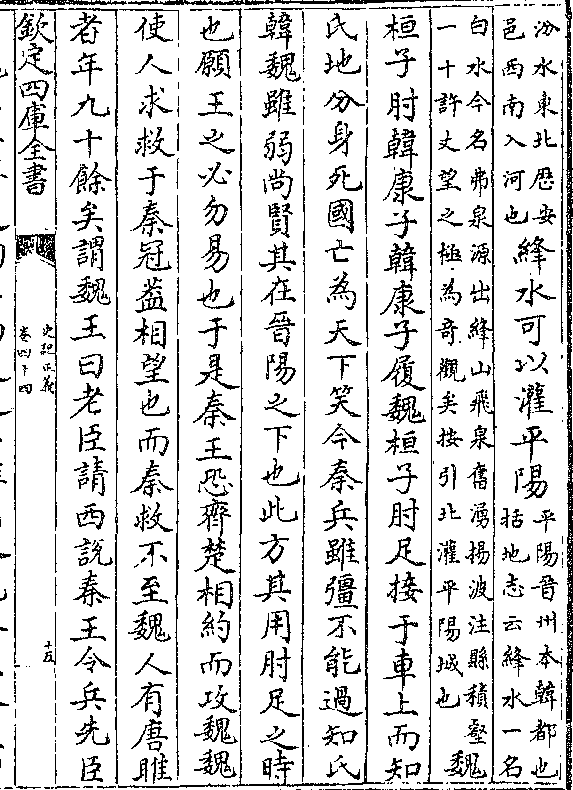 汾水東北歷安
邑西南入河也
絳水可以灌平陽
平陽晉州本韓都也
括地志云絳水一名
白水今名弗泉源出絳山飛泉奮湧揚波注縣積壑
一十許丈望之極為奇觀矣按引北灌平陽城也
魏
桓子肘韓康子韓康子履魏桓子肘足接于車上而知
氏地分身死國亡為天下笑今秦兵雖彊不能過知氏
韓魏雖弱尚賢其在晉陽之下也此方其用肘足之時
也願王之必勿易也于是秦王恐齊楚相約而攻魏魏
使人求救于秦冠葢相望也而秦救不至魏人有唐雎
者年九十餘矣謂魏王曰老臣請西說秦王令兵先臣
欽定四庫全書
史記正義
卷四十四
十五